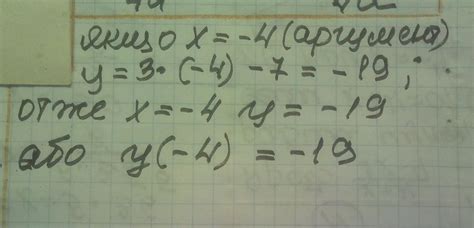 якщо x = -4 (аргумент)
y = 3 · (-4) - 7 = -19;
отже x = -4 y = -19
або y(-4) = -19